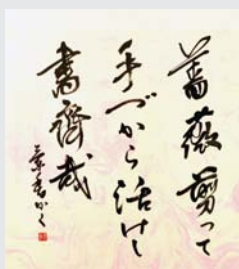 薔薇剪って
手づから活けし
書齋哉